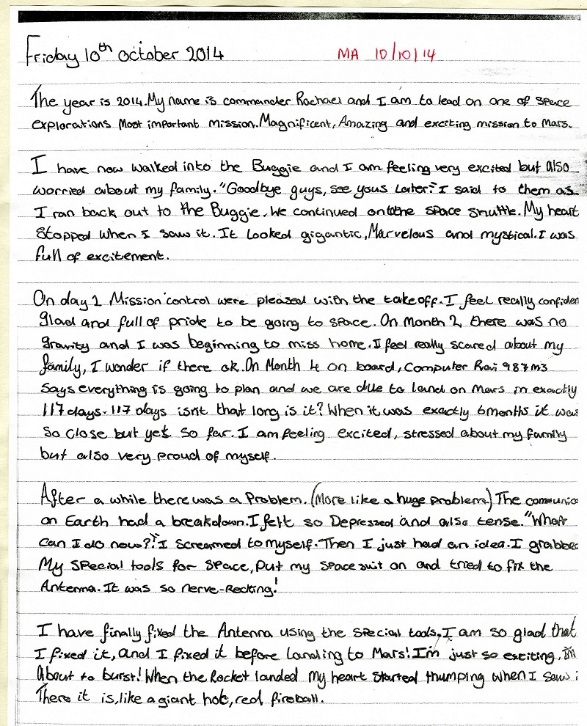 Friday 10th October 2014 MA 10/10/14
The year is 2014. My name is commander Rachael and I am to lead on one of space
explorations Most important mission. Magnificent, Amazing and exciting mission to Mars.
I have now walked into the Buggie and I am feeling very excited but also
worried about my family. "Goodbye guys, see yous later." I said to them as
I ran back out to the Buggie. We continued on to the space shuttle. My heart
Stopped when I saw it. It Looked gigantic, Marvelous and mystical. I was
full of excitement.
On day 1 Mission control were pleased with the take off. I feel really confiden
glad and full of pride to be going to space. On Month 2 there was no
gravity and I was beginning to miss home. I feel really scared about my
family, I wonder if there ok. On Month 4 on board, Computer 987m3
says everything is going to plan and we are due to land on Mars in exactly
117 days. 117 days isnt that long is it? When it was exactly 6 months it was
so close but yet so far. I am feeling excited, stressed about my family
but also very proud of myself.
After a while there was a problem. (More like a huge problem) The communic
on Earth had a breakdown. I felt so Depressed and also tense. "What
can I do now?" I screamed to myself. Then I just had an idea. I grabbed
My special tools for space, put my space suit on and tried to fix the
Antenna. It was so nerve-recking!
I have finally fixed the Antenna using the special tools, I am so glad that
I fixed it, and I fixed it before landing to Mars! I'm just so exciting,
About to burst! When the Rocket landed my heart started thumping when I saw i
There it is, like a giant hot, red fireball.